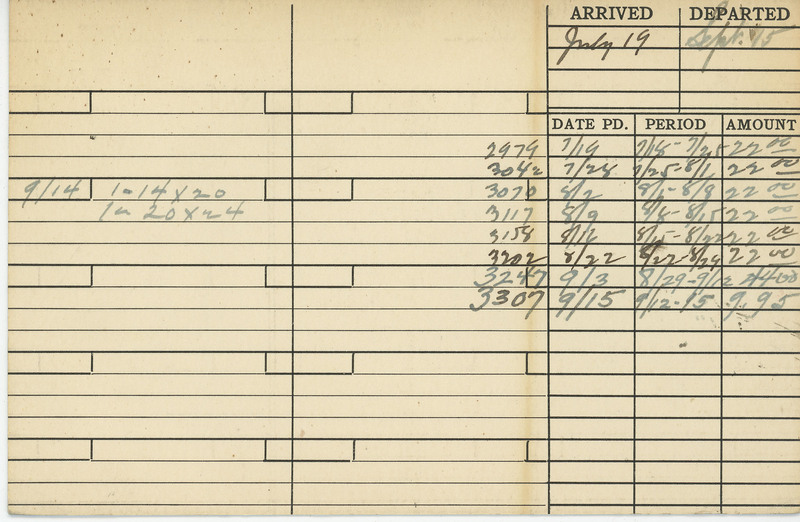 ARRIVED DEPARTED
July 19 Sept. 15
DATE PD. PERIOD AMOUNT
2979 7/19 7/18-7/25 22 00
3042 7/28 7/25-8/1 22 00
9/14 1-14x20 3070 8/2 8/1-8/8 22 00
1- 20x24 3117 8/9 8/8-8/15 22 00
3158 8/16 8/15-8/22 22 00
3202 8/22 8/22-8/29 22 00
3247 9/3 8/29-9/12 44 00
3307 9/15 9/12-15 9.95